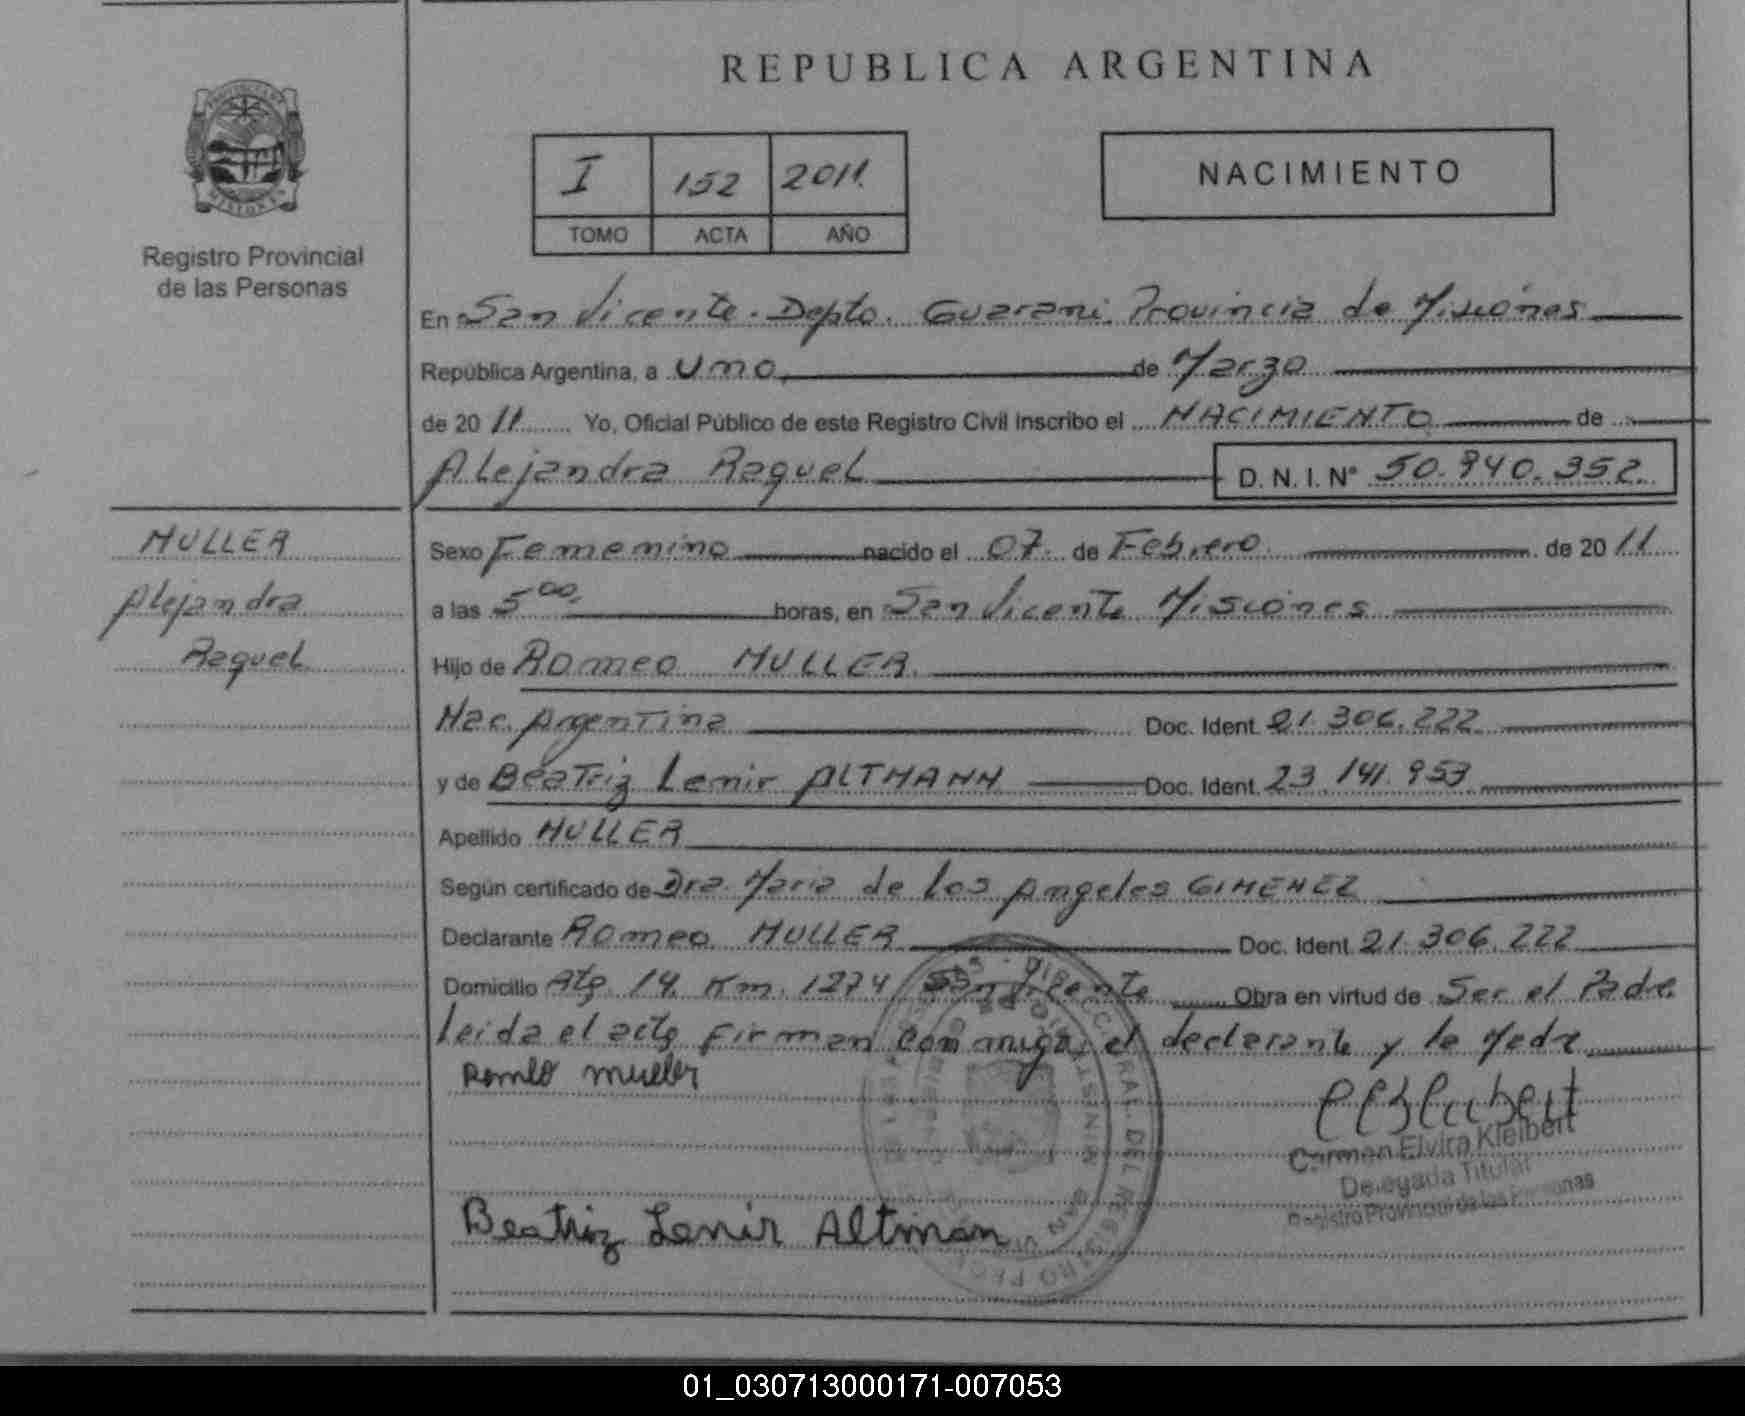 REPUBLICA ARGENTINA
PROVINCIA DE
MISIONES
Registro Provincial
de las Personas
I 152 2011.
TOMO ACTA AÑO
NACIMIENTO
En San Vicente. Depto. Guarani. Provincia de Misiones
República Argentina, a Uno de Marzo
de 20 11 Yo, Oficial Público de este Registro Civil Inscribo el NACIMIENTO de
Alejandra Raquel D. N. I. N° 50.940.352.
MULLER
Alejandra
Raquel
Sexo Femenino nacido el 07. de Febrero de 20 11
a las 5 00. horas, en San Vicente Misiones
Hijo de Romeo MULLER
Nac. Argentina Doc. Ident. 21.306.222
y de Beatriz Lenir ALTMANN Doc. Ident. 23.141.953
Apellido MULLER
Según certificado de Dra. Maria de los Angeles GIMENEZ
Declarante Romeo MULLER Doc. Ident. 21.306.222
Domicilio Km. 1274 San Vicente Obra en virtud de Ser el Padre
leida el acta Firman con migo, el declarante y la Madre
Romeo muller
Carmen Elvira Kleibert
Delegada Titular
Registro Provincial de las Personas
Beatriz Lenir Altman
01_030713000171-007053